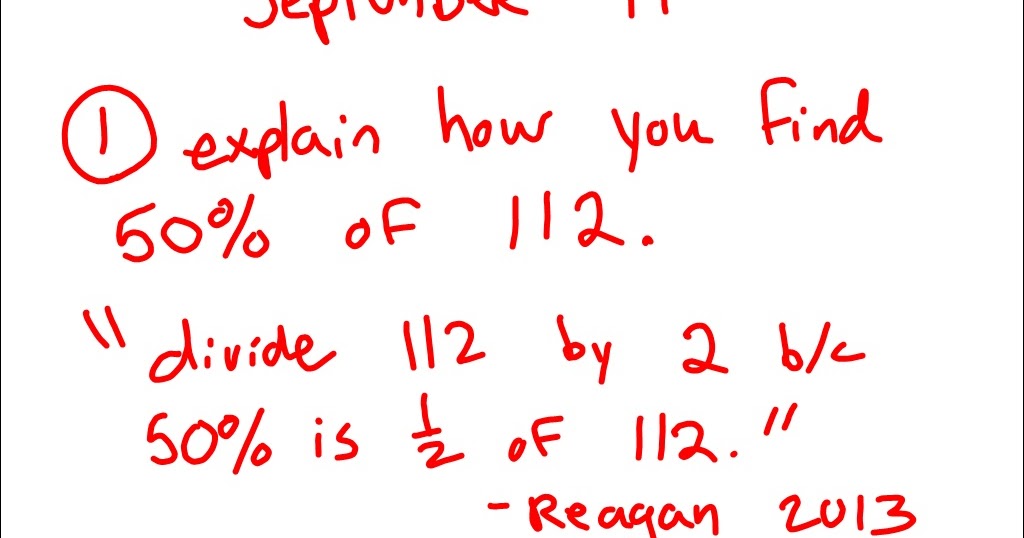 September
① explain how you find
50% of 112.
" divide 112 by 2 b/c
50% is 1/2 of 112."
- Reagan 2013